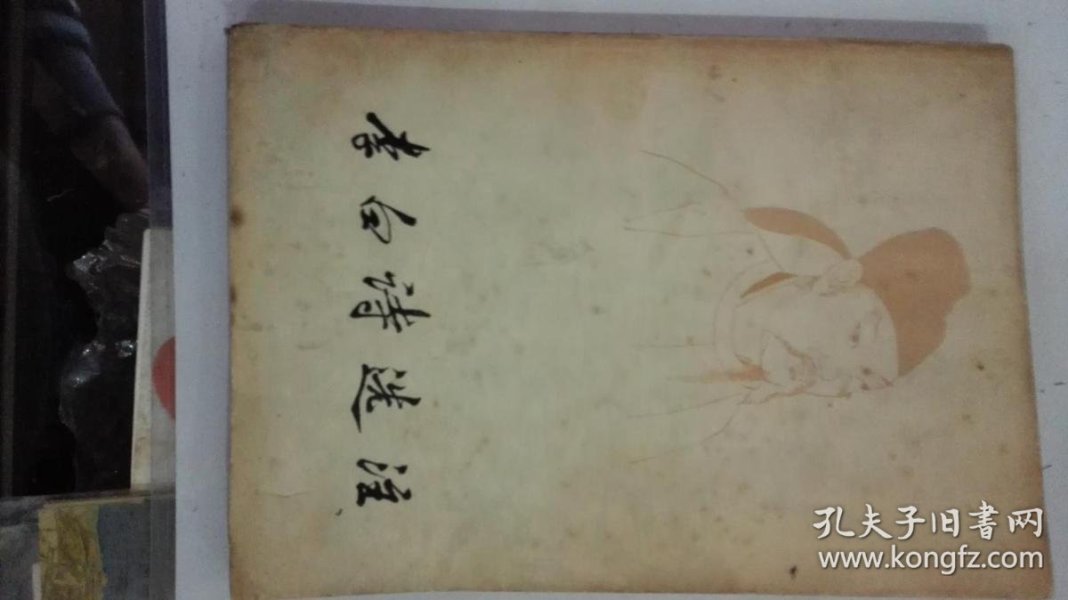 李白诗选注
孔夫子旧書网
www.kongfz.com